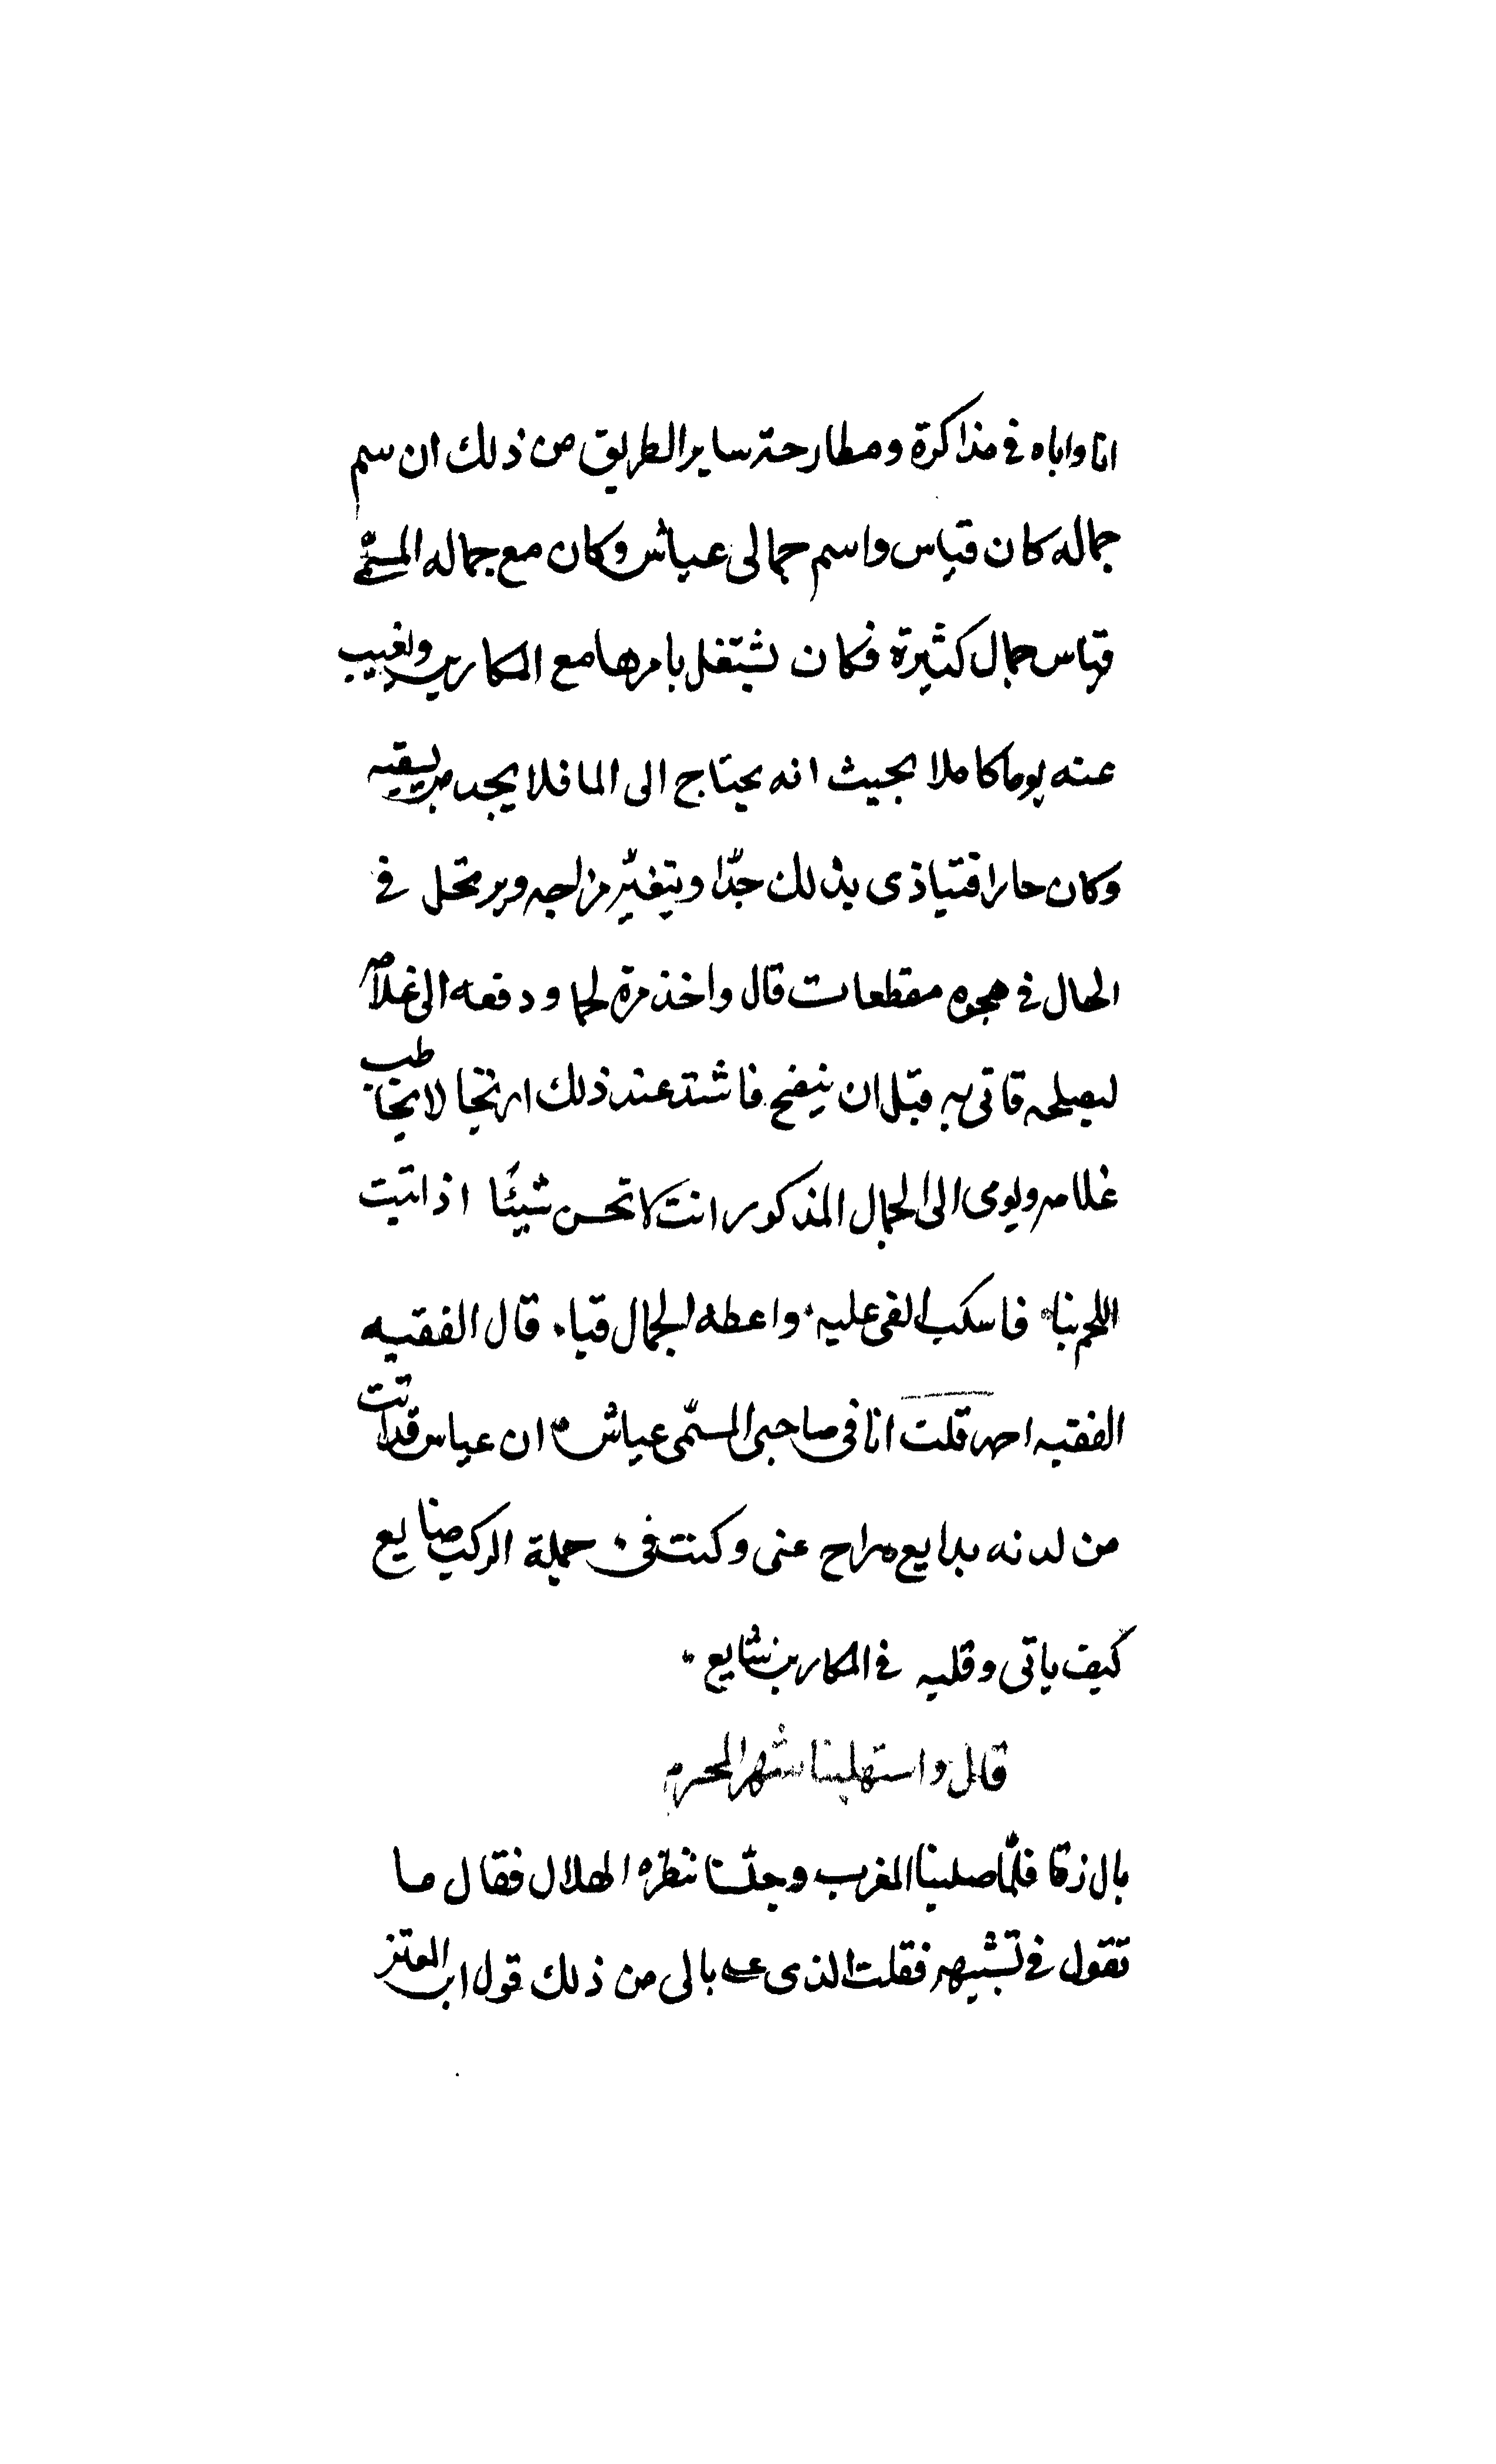 انا واياه في مذاكرة ومطارحة ساير الطريق من ذلك ان سم
جماله كان قباس واسم جمالى عياش وكان مع جماله المسمى
قباس جمال كثيرة فكان يشتغل بامرها مع المكارين ويغيب
عنه يوما كاملا بحيث انه يحتاج الى الما فلا يجد من يسقيه
وكان حارا فتياذى بذلك جدّا ويتغيّر مزاجه ويرتحل في
الحال في هجوه مقطعات قال واخذ مرة لحما ودفعه الى غلامه
ليصلحه فاتى به قبل ان ينضج فاشتد عند ذلك ارتجالا يخاطب
غلامه ويومى الى الجمال المذكور انت لا تحسن شيئا اذ اتيت
اللحم بنا فاسكب القى عليه واعطه الجمال قبا قال الفقيه
الفقيه احمد قلت انا في صاحبى المسمّى عياش ان عياس قد اتت
من لدنه بدايع راح عنى وكنت في جملة الركب ضايع
كيف ياتى وقلبه في المكارين شايع
قال واستهلينا شهر المحرم
بالازرقا فلمّا صلينا المغرب وجلسنا ننظره الهلال فقال ما
تقول في تشبيهه فقلت الذى على بالى من ذلك قول ابن المعتز